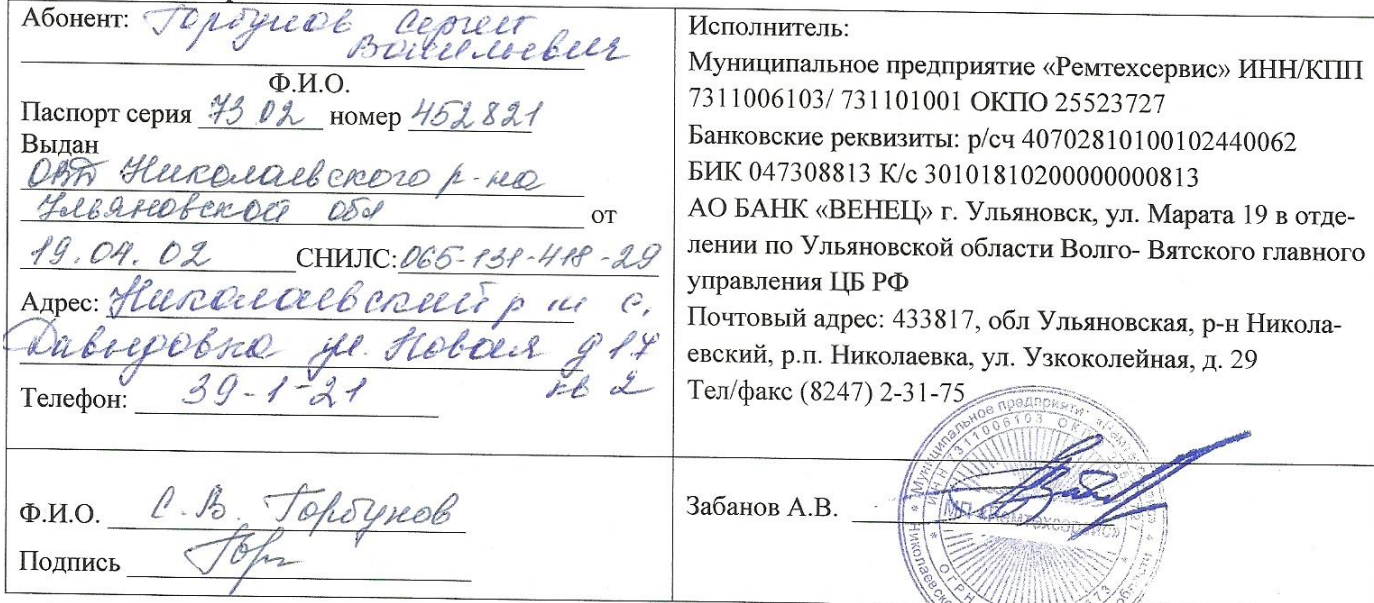 Абонент: Горбунов Сергей
Васильевич
Ф.И.О.
Паспорт серия 73 02 номер 452821
Выдан
ОВД Николаевского р-на
Ульяновской обл от
19.04.02 СНИЛС: 065-131-418-29
Адрес: Николаевский р-н с.
Давыдовка ул. Новая д 17
Телефон: 39-1-21 кв 2
Ф.И.О. С.В. Горбунов
Подпись Гор
Исполнитель:
Муниципальное предприятие «Ремтехсервис» ИНН/КПП
7311006103/ 731101001 ОКПО 25523727
Банковские реквизиты: р/сч 40702810100102440062
БИК 047308813 К/с 30101810200000000813
АО БАНК «ВЕНЕЦ» г. Ульяновск, ул. Марата 19 в отде-
лении по Ульяновской области Волго- Вятского главного
управления ЦБ РФ
Почтовый адрес: 433817, обл Ульяновская, р-н Никола-
евский, р.п. Николаевка, ул. Узкоколейная, д. 29
Тел/факс (8247) 2-31-75
Забанов А.В.
Муниципальное предприятие
ИНН 7311006103
МП «Ремтехсервис»